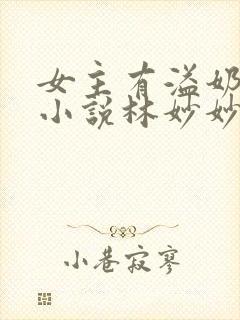 女主有溢奶
小说林妙妙
小巷寂寥